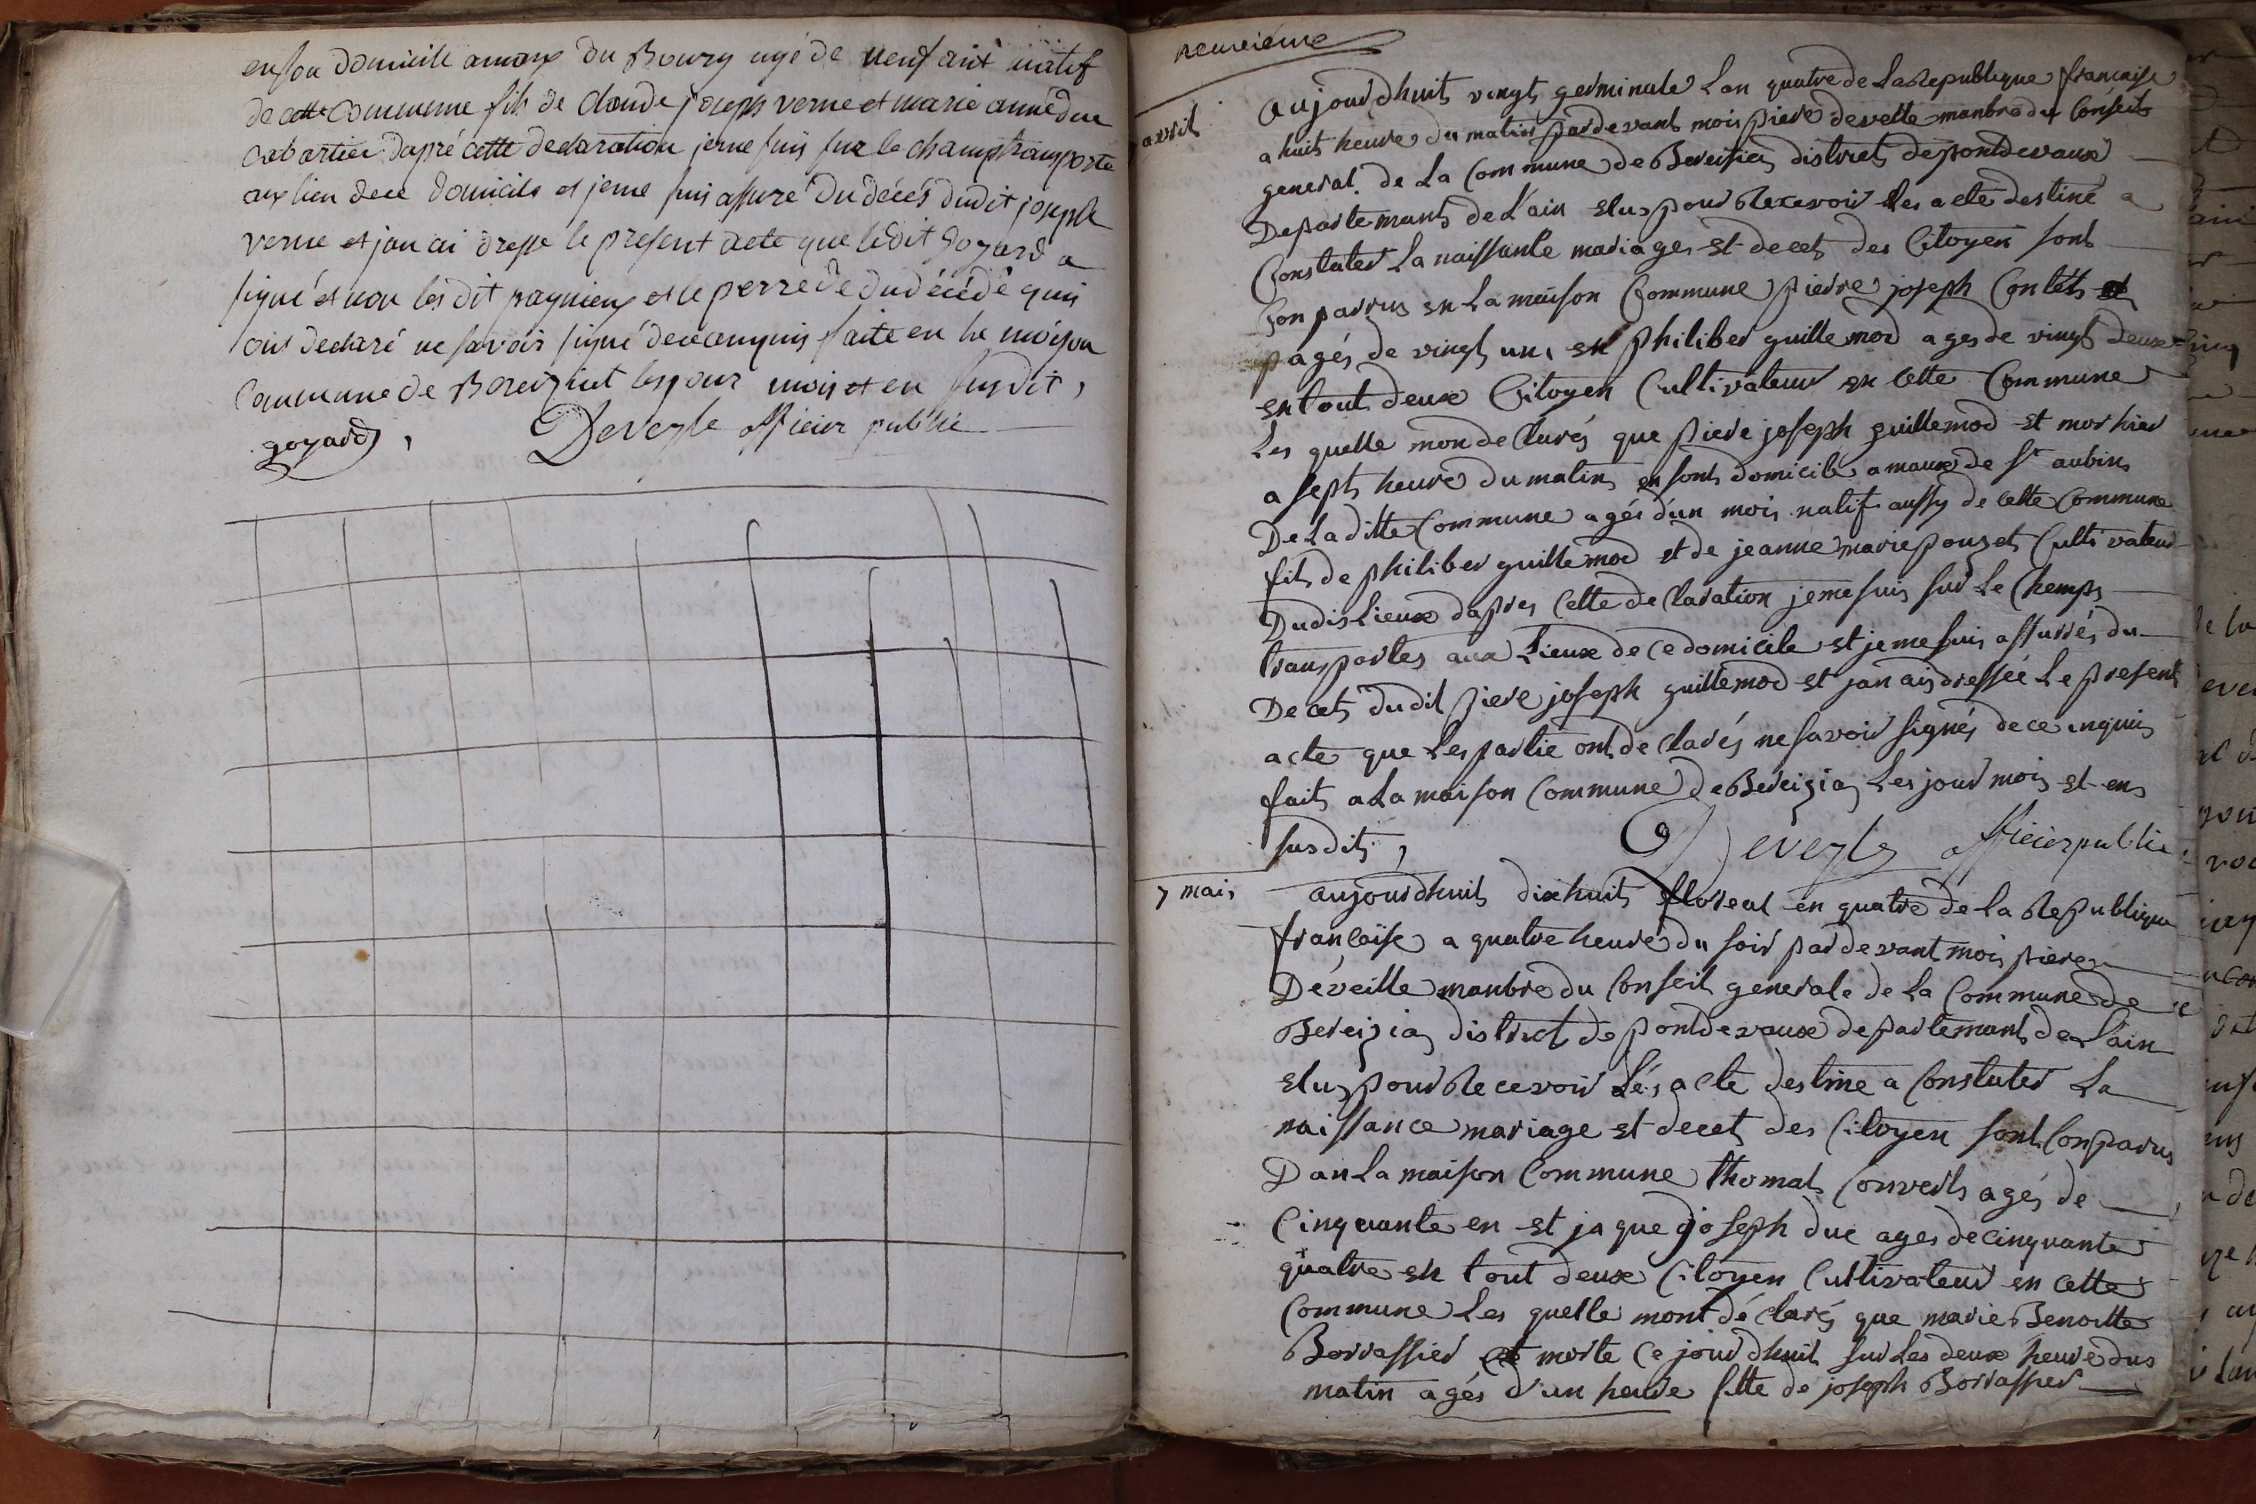 en son domicile amaux du Bourg agé de neuf ans natif
de cette commune fils de claude joseph verne et marie anne duc
cabartier dapré cette declaration jeme suis sur le champ tramporté
aux lieu dece domicile et jeme suis assuré du décés dudit joseph
verne et jan ai dressé le présent acte que ledit goyard a
signé et non les dit paynieux et le perre de dudécédé quis
ont declaré ne savoir signé dececanquis faite en la maison
Commune de Bereiziat les jour mois et en susdit,
goyard, Deveyle officier public
neuvieme
avril
aujourdhuit vingt germinale Lan quatre de La Republique francaise
a huit heure du matin pardevant mois piere develle manbre du Conseils
general de La Commune de Bereisiat distrits de pontdevaux
Departemants de L'ain elus pour Recevoir Les acte destiné a
Constater La naissante mariages et decet des Citoyen sont
Conparrus en La maison Commune pierre joseph Contets
agés de vingt un, en philiber guillemod ages de vingt deux
en tout deux Citoyen Cultivateur en cette Commune
Les quelle mon declarés que piere joseph guillemod et mor hier
a sept heure du matin en sont domicile amaux de St aubin
De La ditte Commune agés d'un mois natif aussy de cette Commune
fils de philiber guillemod et de jeanne marie pouzet Cultivateur
Dudis Lieux dapres Cette declaration jeme suis sur Le Chemps
transportes aux Lieux de Ce domicile et jeme suis assurrés du
Decets dudit piere joseph guillemod et jan ais dressée Le present
acte que Les partie ont declarés ne savoir signés dece inquis
fait a La maison Commune de Bereizia Les jour mois et en
susdits, Deveyle officier public
7 mais
aujourdhuit dixhuit floreal en quatre de la Republique
francaise a quatre heure du soir pardevant mois piere
Déveille manbre du Conseil generale de La Commune de
Bereizia district de pontdevaux departemant de L'ain
elus pour Recevoir Lés acte destine a Constater La
naissance mariage et decet des Citoyen sont Conparus
Dan La maison Commune thomas Convert agés de
Cinquante en et jaque joseph duc ages de cinquante
quatre en tout deux Citoyen Cultivateur en cette
Commune Les quelle mont déclarés que marie Benoitte
Borrassier et morte Ce jourdhuit sur Les deux heure dus
matin agés d'un heure fille de joseph Borrassier